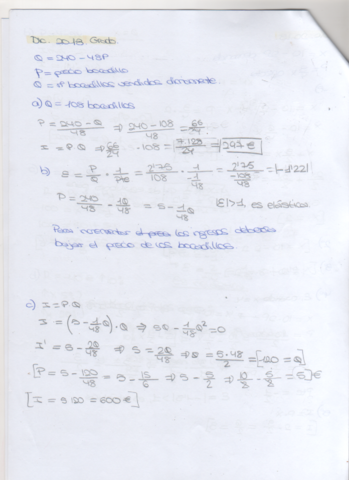 Dic. 2018. Grado
Q = 240 - 48P
P = precio bocadillo
Q = nº bocadillos vendidos diariamente
a) Q = 108 bocadillos
P = 240 - Q / 48 ⇒ 240 - 108 / 48 = 66 / 24
I = PQ ⇒ 66 / 24 · 108 = 7.128 / 24 = 297 €
b) ε = P / Q · 1 /
P = 240 / 48 - 1Q / 48 = 5 - 1 / 48 Q |ε| > 1, es elástica
Para incrementar los ingresos debería
bajar el precio de los bocadillos
c) I = PQ
I = (5 - 1 / 48 Q) · Q ⇒ 5Q - 1 / 48 Q² = 0
I' = 5 - 2Q / 48 ⇒ 5 = 2Q / 48 ⇒ Q = 5·48 / 2 = [120 = Q]
[P = 5 - 120 / 48 = 5 - 15 / 6 ⇒ 5 - 5 / 2 ⇒